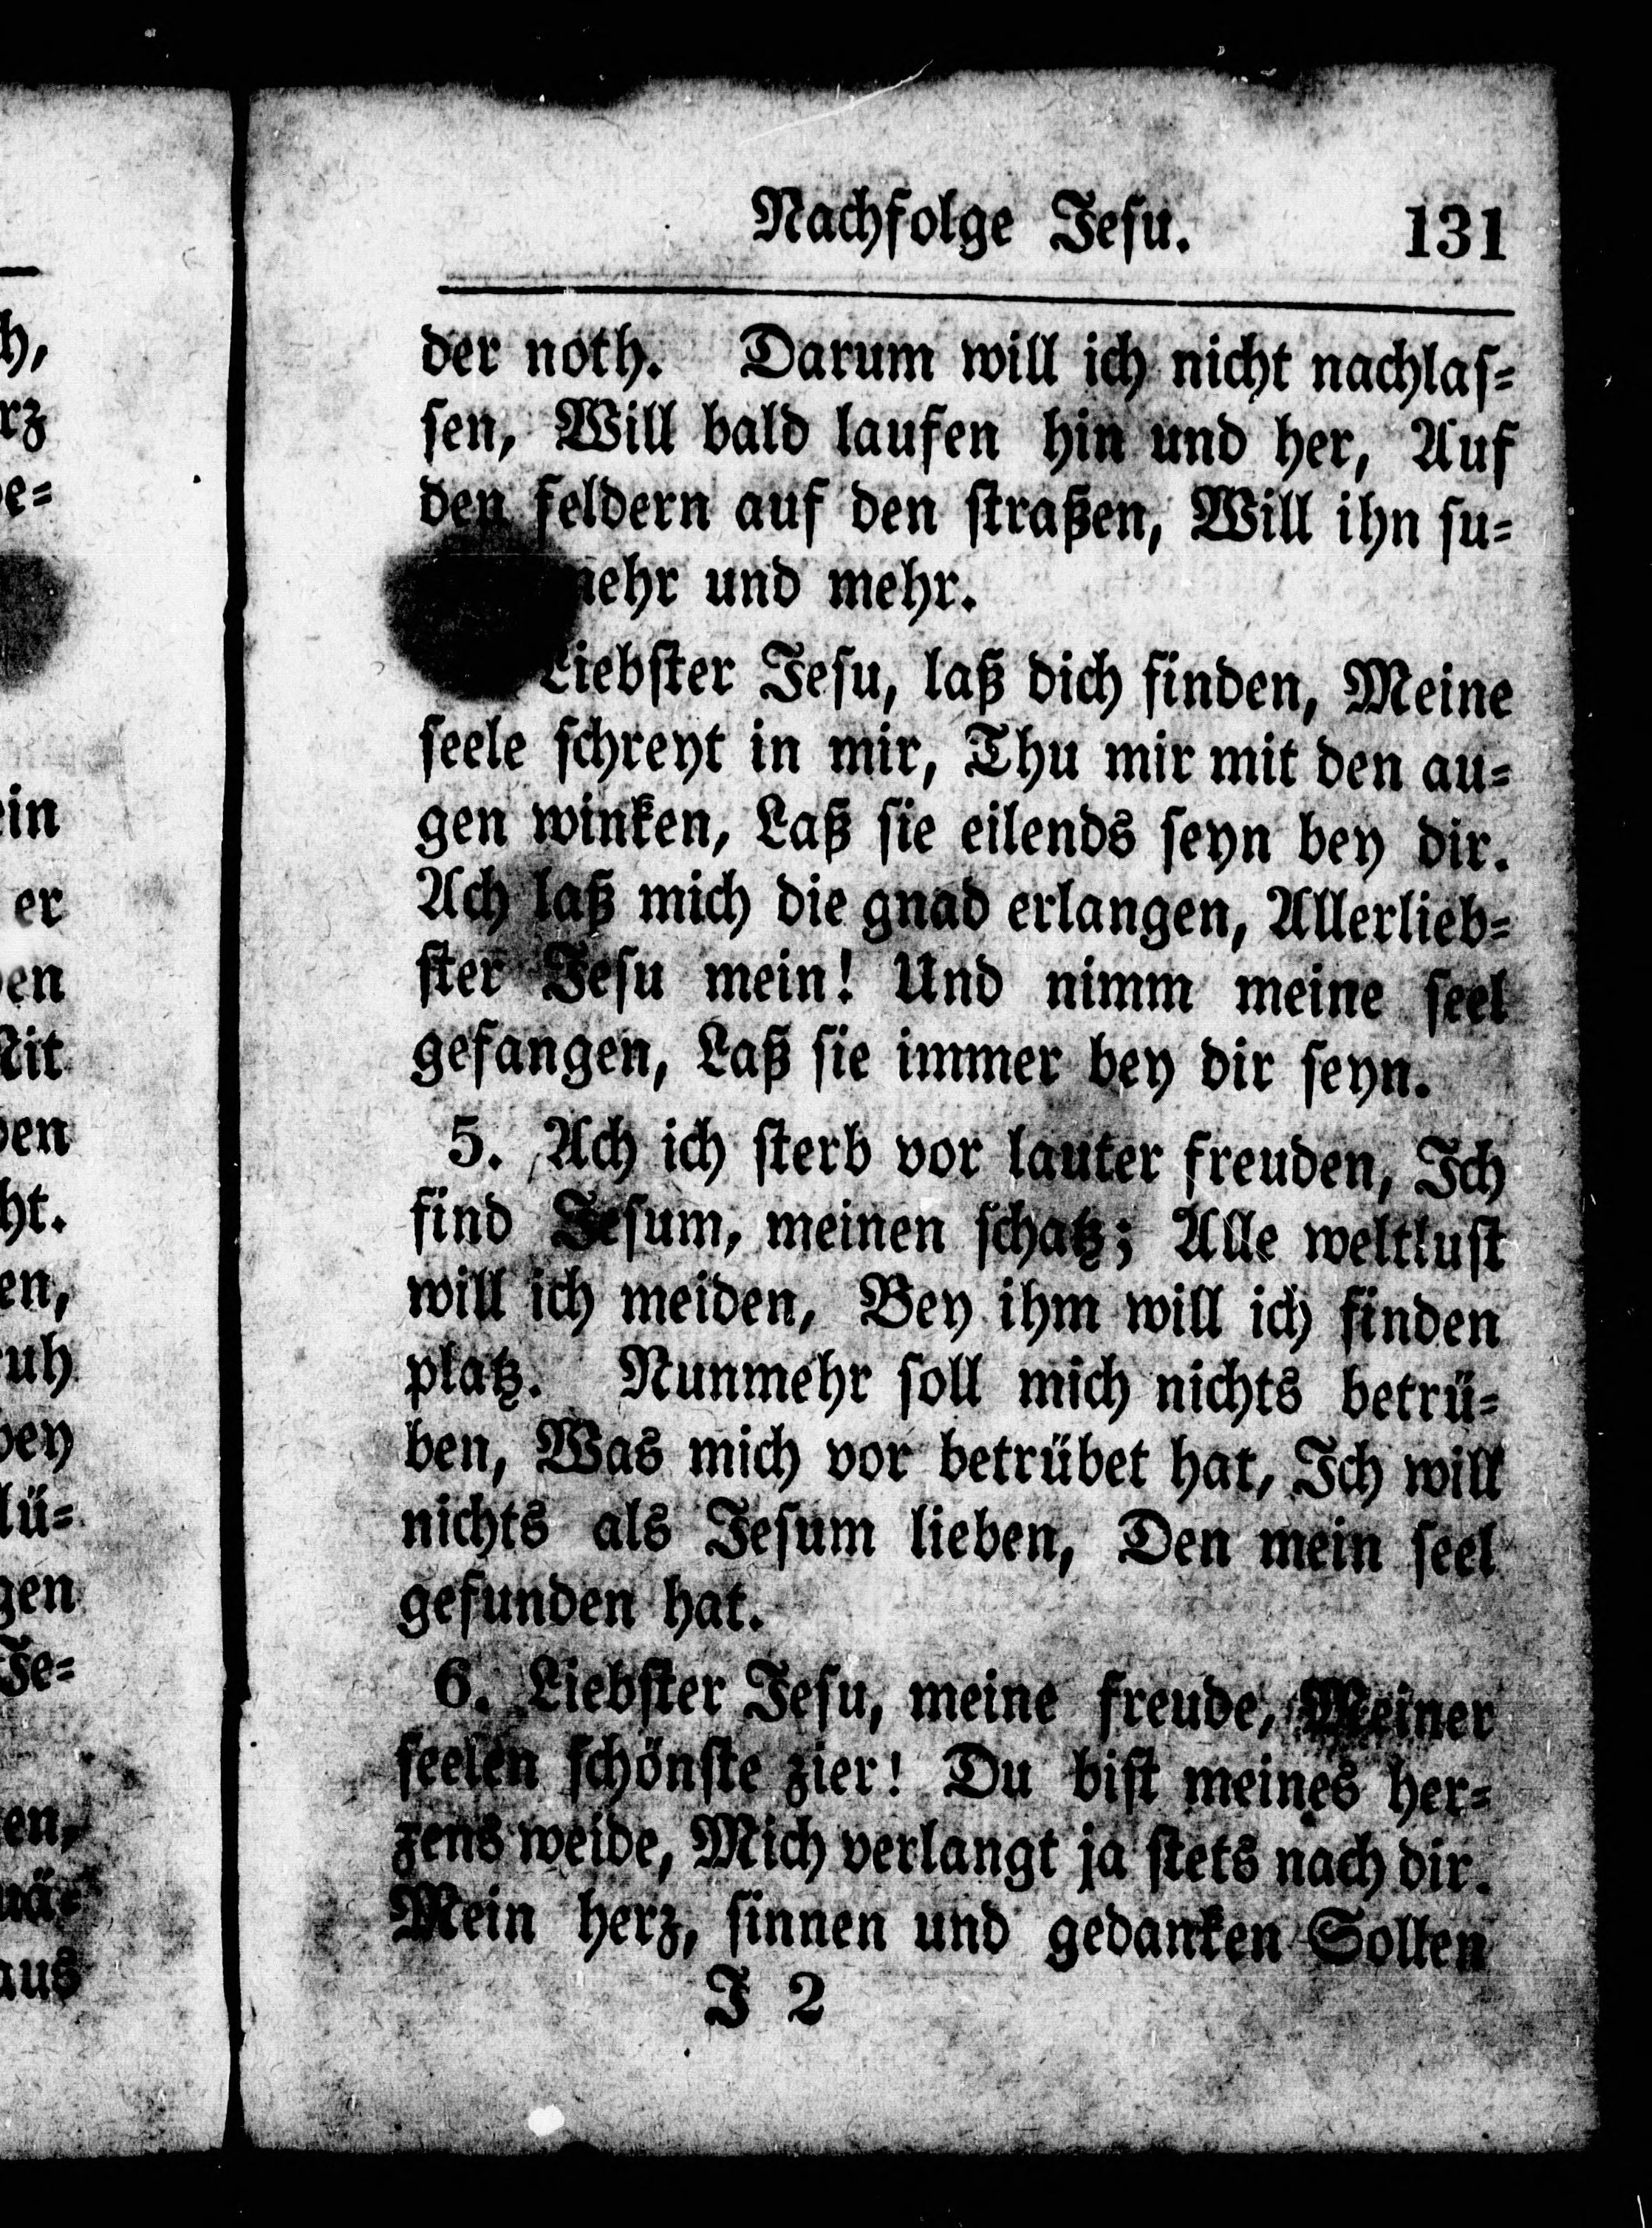 Nachfolge Jesu. 131
der noth. Darum will ich nicht nachlas-
sen, Will bald laufen hin und her, Auf
den feldern auf den straßen, Will ihn su-
und mehr.
Liebster Jesu, laß dich finden, Meine
seele schreyt in mir, Thu mir mit den au-
gen winken, Laß sie eilends seyn bey dir.
Ach laß mich die gnad erlangen, Allerlieb-
ster Jesu mein! Und nimm meine seel
gefangen, Laß sie immer bey dir seyn.
5. Ach ich sterb vor lauter freuden, Ich
find Jesum, meinen schatz; Alle weltlust
will ich meiden, Bey ihm will ich finden
platz. Nunmehr soll mich nichts betrü-
ben, Was mich vor betrübet hat, Ich will
nichts als Jesum lieben, Den mein seel
gefunden hat.
6. Liebster Jesu, meine freude, Meiner
seelen schönste zier! Du bist meines her-
zens weide, Mich verlangt ja stets nach dir.
Mein herz, sinnen und gedanken Sollen
J 2